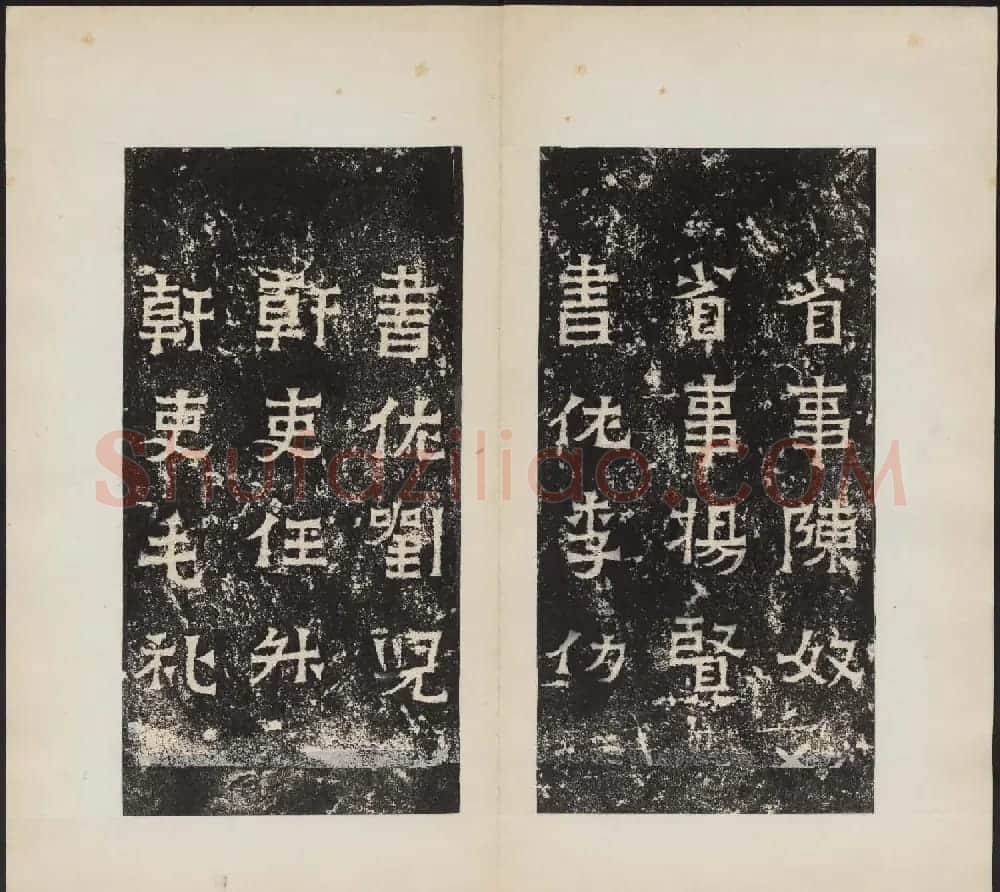 省事陳奴
省事楊賢
書佐李仂
書佐劉兒
幹吏任升
幹吏毛礼
Shufaziliao.COM